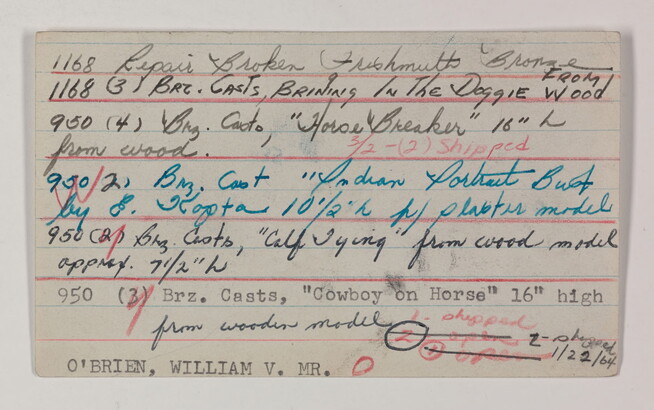 1168 Repair Broken Frishmuth Bronze
1168 (3) BRZ. CASTS, BRINING IN THE DOGGIE FROM WOOD
950 (4) Brz. Casts, "Horse Breaker" 16" h
from wood. 3/2-(2) Shipped
950 (2) Brz. Cast "Indian Portrait Bust
by E. Kopta 10 1/2" h f/ plaster model
950 (2) Brz. Casts, "Calf Tying" from wood model
approx. 7 1/2" h
950 (3) Brz. Casts, "Cowboy on Horse" 16" high
from wooden model 1- shipped
2 open 2-shipped
1 open 1/22/64
O'BRIEN, WILLIAM V. MR. O